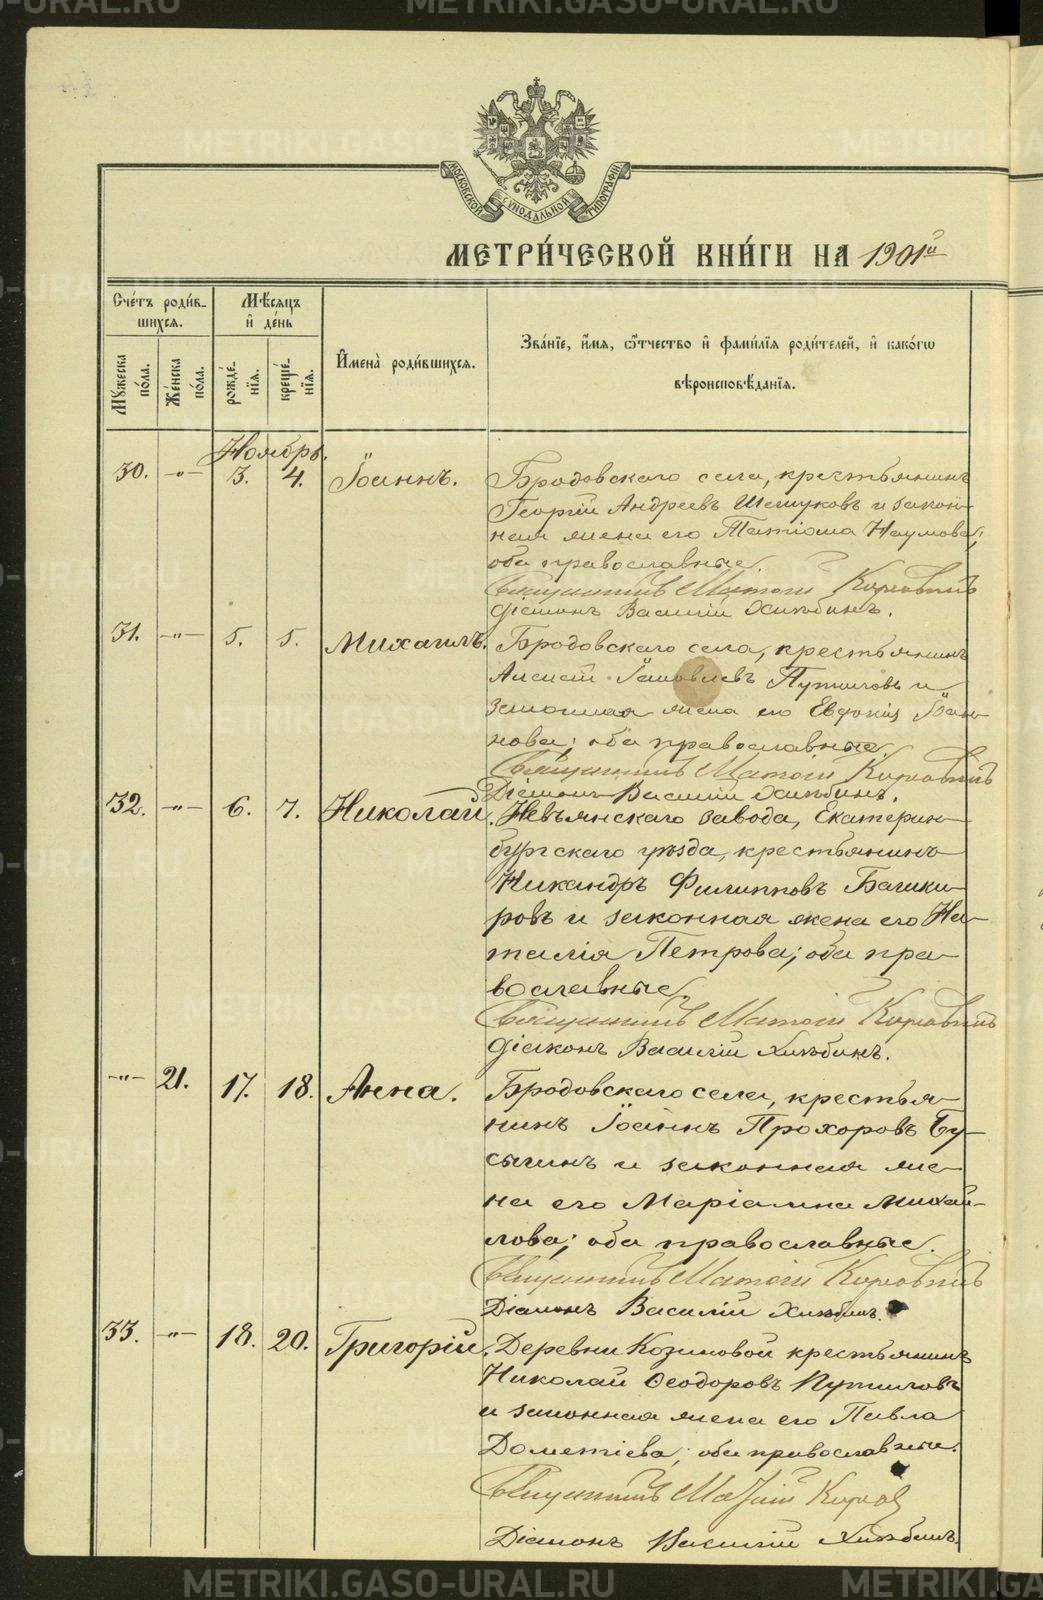 МОСКОВСКОЙ СѴНОДАЛЬНОЙ ТИПОГРАФІИ.
МЕТРИ́ЧЕСКОЙ КНИ́ГИ НА 1901й
Сче́тъ роди́в-
шихсѧ.
Мѣ́сѧцъ
и҆ де́нь
Мꙋ́жеска по́ла.
Же́нска по́ла.
рожде́-
нїѧ.
креще́-
нїѧ.
И҆мена̀ роди́вшихсѧ.
Зва́нїе, и҆́мѧ, ѻ҆́тчество и҆ фами́лїѧ роди́телей, и҆ како́гѡ
вѣроисповѣ́данїѧ.
Ноябрь.
30. -"- 3. 4. Іоаннъ. Бродовскаго села, крестьянинъ
Георгій Андреевъ Шешуковъ и закон-
ная жена его Татіана Наумова;
оба православные.
Священникъ Матѳій Кор
Діаконъ Василій Хлѣбинъ.
31. -"- 5. 5. Михаилъ. Бродовскаго села, крестьянинъ
Алексѣй Іаковлевъ Путиловъ и
законная жена его Евдокія Іоан-
нова; оба православные.
Священникъ Матѳій
Діаконъ Василій Хлѣбинъ.
32. -"- 6. 7. Николай. Невьянскаго завода, Екатерин-
бургскаго уѣзда, крестьянинъ
Никандръ Филипповъ Башки-
ровъ и законная жена его На-
талія Петрова; оба пра-
вославные
Священникъ Матѳій
Діаконъ Василій Хлѣбинъ.
-"- 21. 17. 18. Анна. Бродовскаго села, крестья-
нинъ Іоаннъ Прохоровъ Бу-
сыгинъ и законная же-
на его Маріамна Михай-
лова; оба православные.
Священникъ Матѳій
Діаконъ Василій Хлѣбинъ.
33. -"- 18. 20. Григорій. Деревни Козиновой крестьянинъ
Николай Ѳеодоровъ Путиловъ
и законная жена его Павла
Дометіева; оба православные.
Священникъ Матѳій
Діаконъ Василій Хлѣбинъ.
METRIKI.GASO-URAL.RU